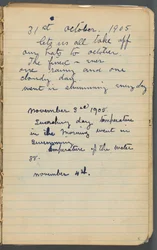 31st October, 1905
lets us all take off
our hats to October
The finest - ever
one rainy and one
cloudy day.
went in swimming every day
November 3rd 1905.
day temperature
in the morning went in
swimming
temperature of the water
55.
November 4th.